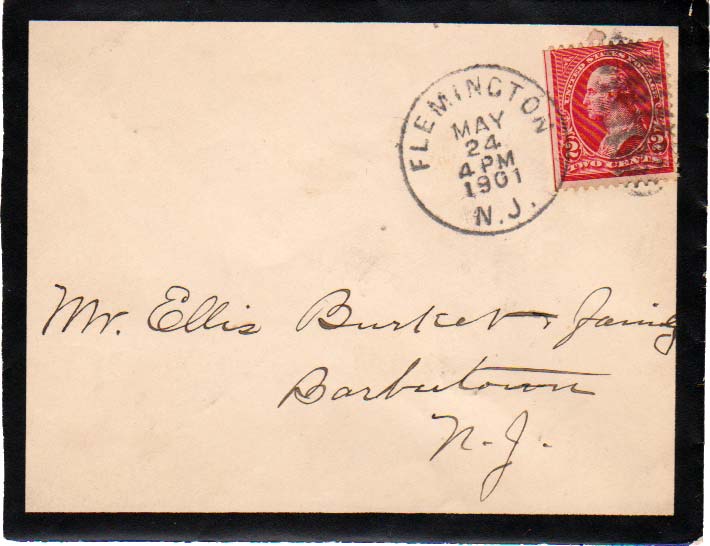 FLEMINGTON
MAY
24
4 PM
1901
N.J.
UNITED STATES POSTAGE
2 2
TWO CENTS
Mr. Ellis Burket & family
Barbertown
N. J.